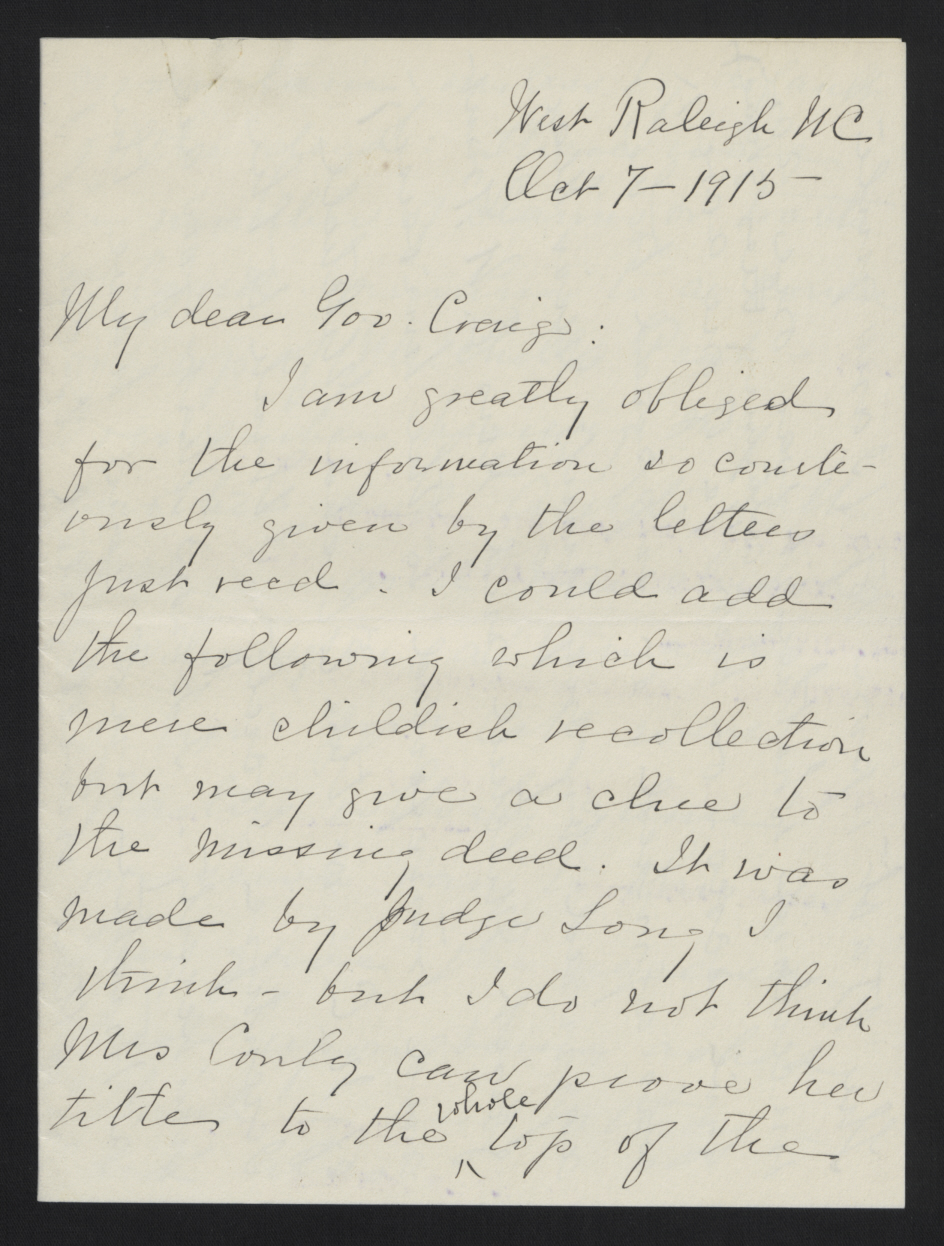 West Raleigh NC
Oct 7 - 1915 -
My dear Gov. Craig:
I am greatly obliged
for the information so courte-
ously given by the letters
just recd. I could add
the following which is
mere childish recollection
but may give a clue to
the missing deed. It was
made by Judge Long I
think - but I do not think
Mrs Conly can prove her
whole
tittle to the ^ top of the